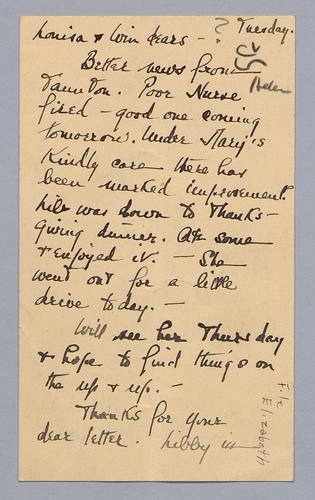 Louisa & Win dears - ? Tuesday.
Better news from
Taunton. Poor Nurse Helen
fired - good one coming
tomorrow. Under Mary's
Kindly care there has
been marked improvement.
was down to Thanks-
giving dinner. Ate some
& enjoyed it. - She
went out for a little
drive today. -
Will see her Thursday
& hope to find things on
the up & up. -
Thanks for your
dear letter. Libby
File
Elizabeth